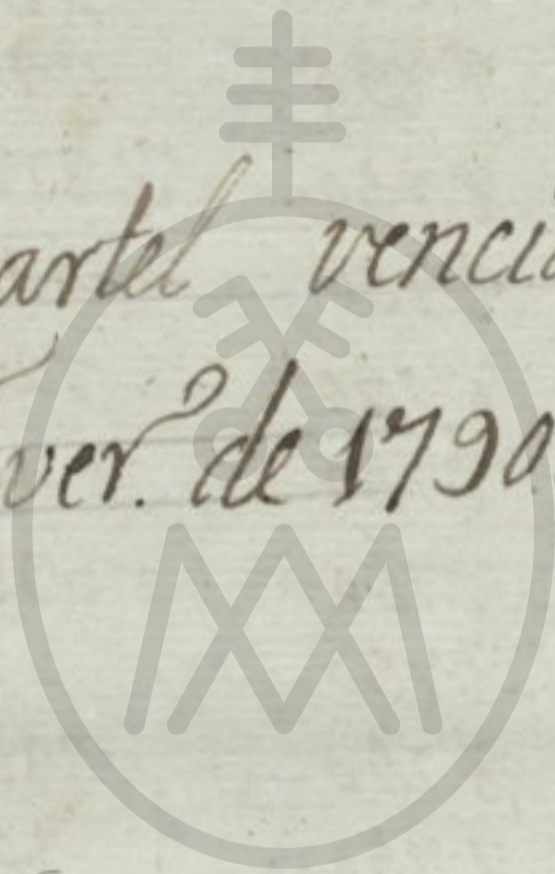 artel venci
ver.º de 1790